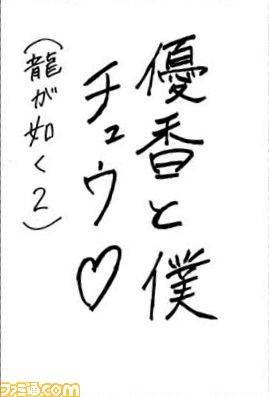 優香と僕
チュウ♡
（龍が如く2）
ファミ通.com